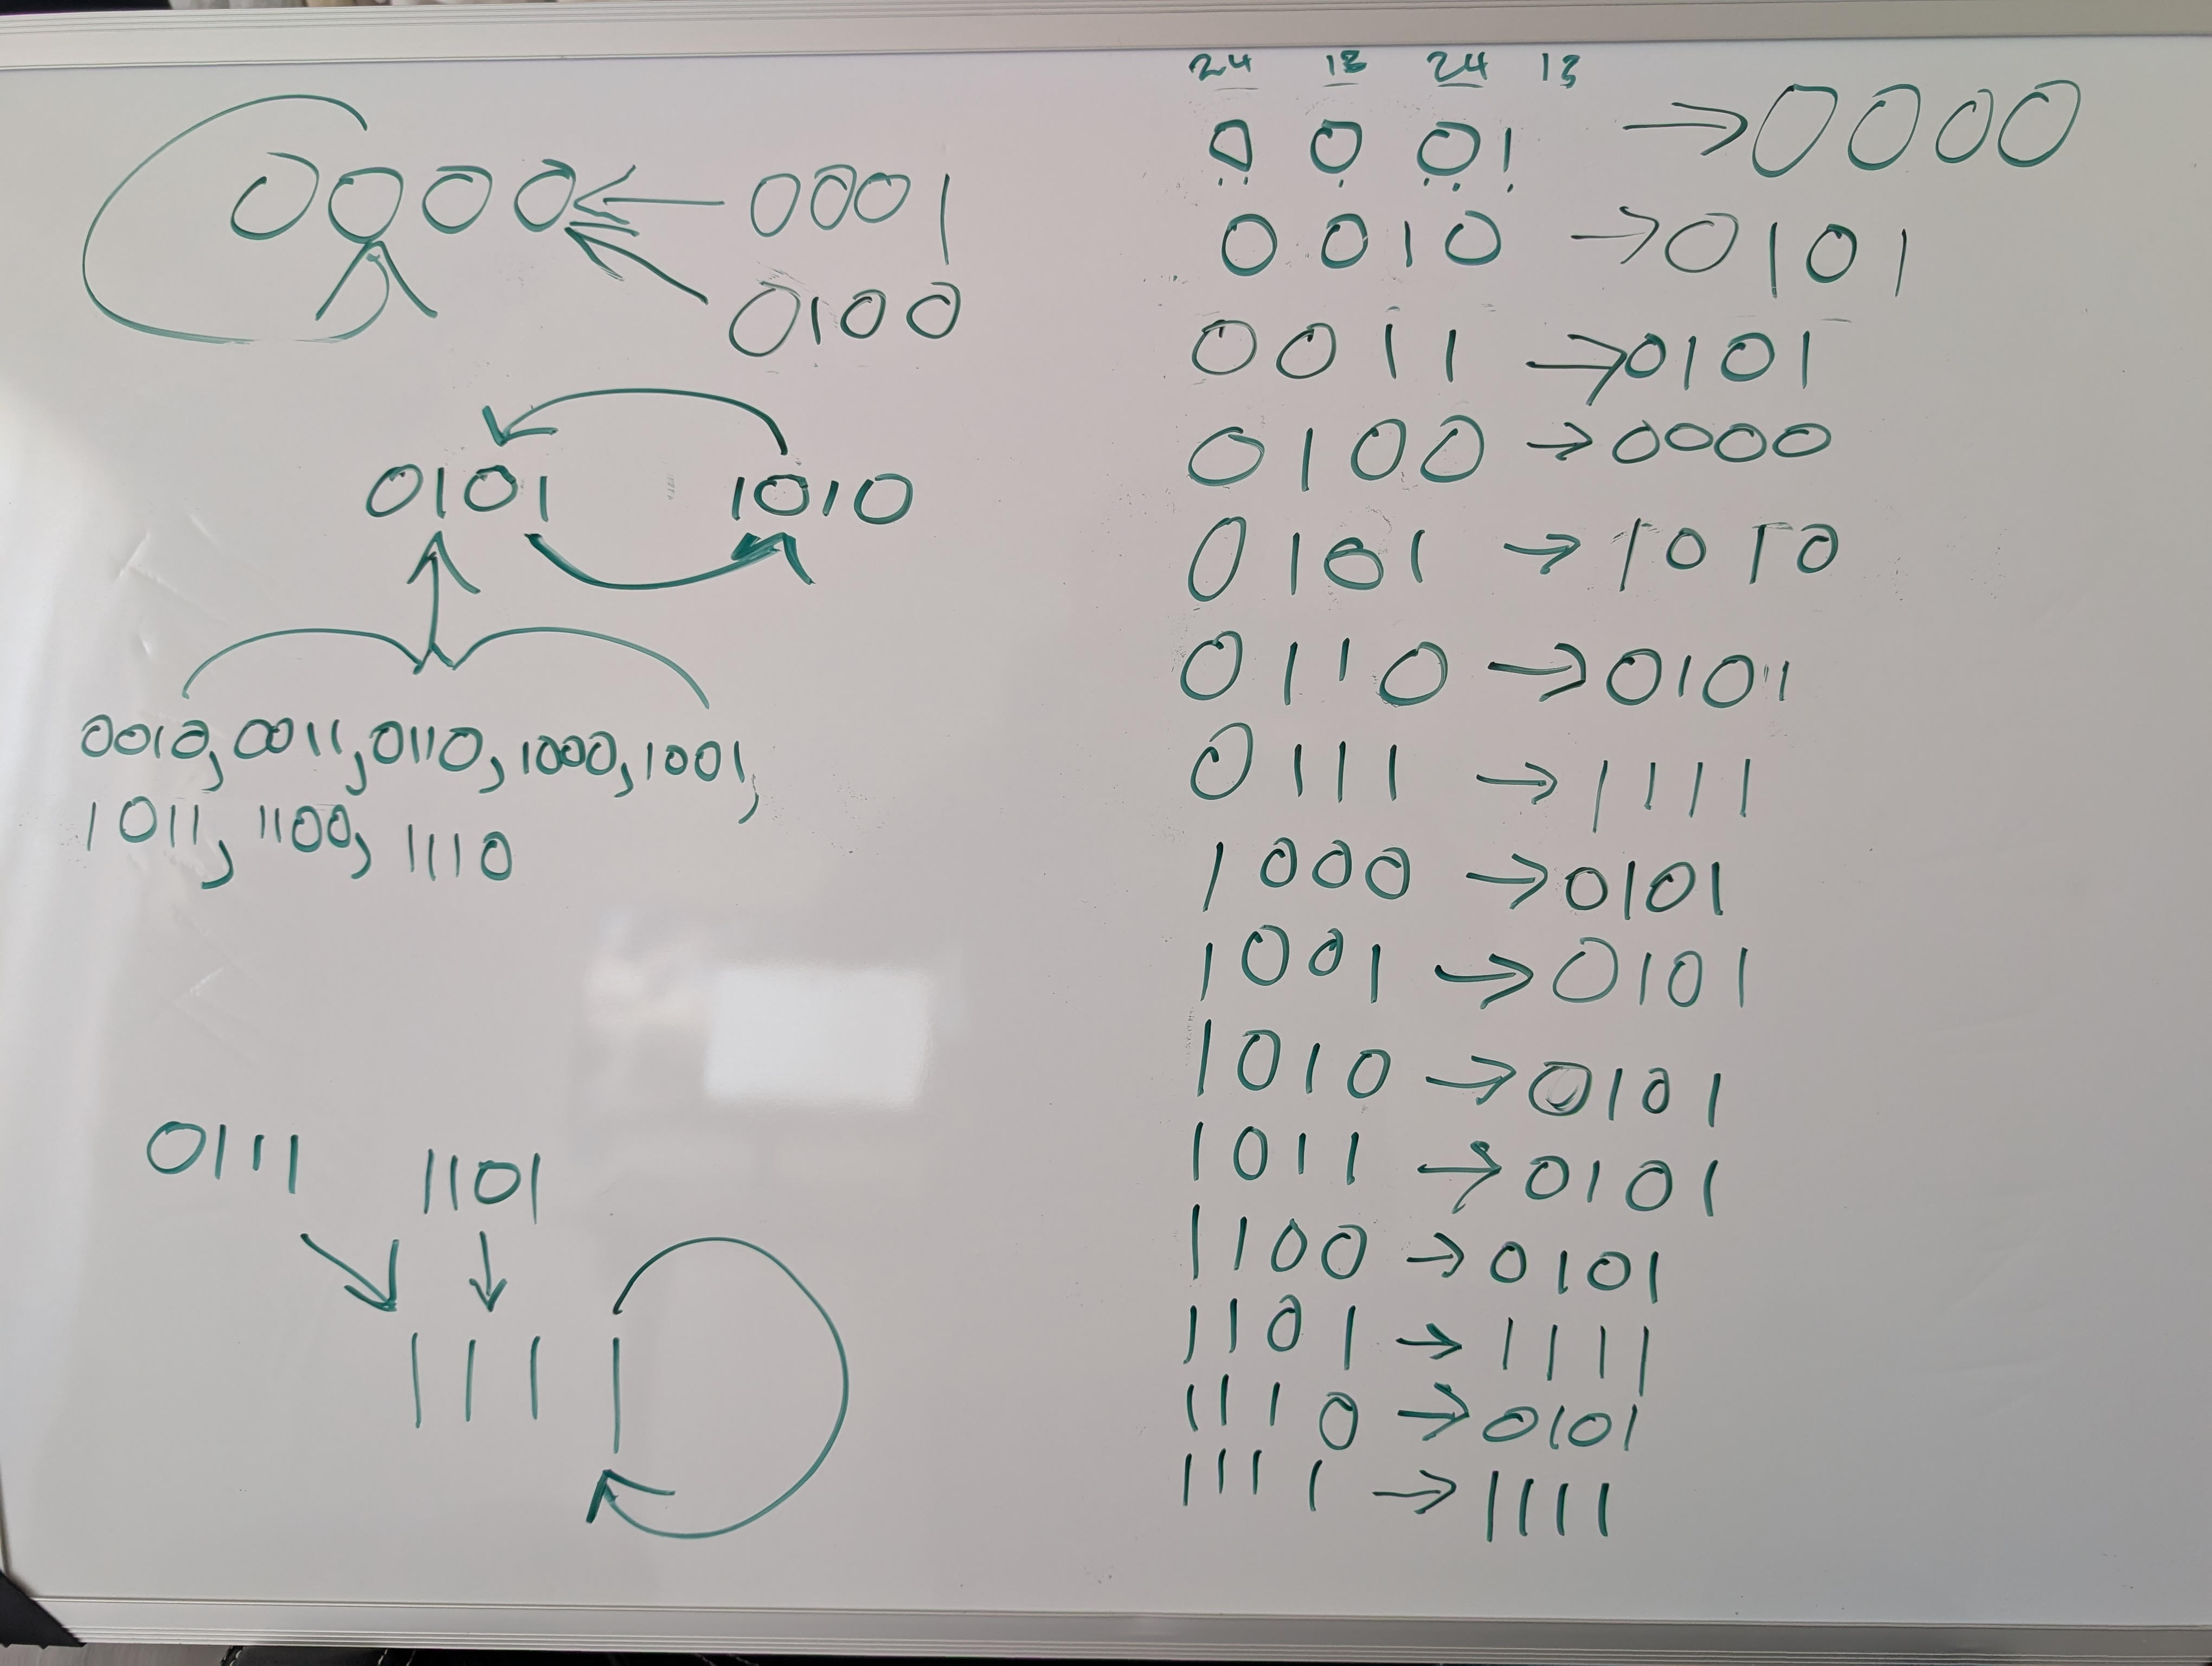 0000 ← 0001
0100
0101 1010
0010, 0011, 0110, 1000, 1001,
1011, 1100, 1110
0111 1101
1111
24 13 24 13
0001 → 0000
0010 → 0101
0011 → 0101
0100 → 0000
0101 → 1010
0110 → 0101
0111 → 1111
1000 → 0101
1001 → 0101
1010 → 0101
1011 → 0101
1100 → 0101
1101 → 1111
1110 → 0101
1111 → 1111